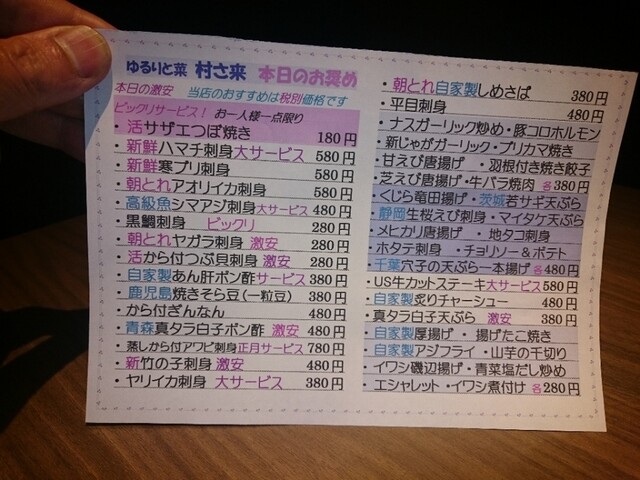 ゆるりと菜 村さ来 本日のお奨め
本日の激安 当店のおすすめは税別価格です
ビックリサービス！ お一人様一点限り
・活サザエつぼ焼き 180円
・新鮮ハマチ刺身大サービス 580円
・新鮮寒ブリ刺身 580円
・朝とれアオリイカ刺身 580円
・高級魚シマアジ刺身大サービス 480円
・黒鯛刺身 ビックリ 280円
・朝とれヤガラ刺身 激安 280円
・活から付つぶ貝刺身 激安 280円
・自家製あん肝ポン酢サービス 380円
・鹿児島焼きそら豆（一粒豆） 380円
・から付ぎんなん 480円
・青森真タラ白子ポン酢 激安 480円
・蒸しから付アワビ刺身正月サービス 780円
・新竹の子刺身 激安 480円
・ヤリイカ刺身 大サービス 380円
・朝とれ自家製しめさば 380円
・平目刺身 480円
・ナスガーリック炒め・豚コロホルモン
・新じゃがガーリック・ブリカマ焼き
・甘えび唐揚げ ・羽根付き焼き餃子
・芝えび唐揚げ・牛バラ焼肉 各380円
・くじら竜田揚げ・茨城若サギ天ぷら
・静岡生桜えび刺身・マイタケ天ぷら
・メヒカリ唐揚げ ・地タコ刺身
・ホタテ刺身 ・チョリソー＆ポテト
・千葉穴子の天ぷら一本揚げ 各480円
・US牛カットステーキ大サービス580円
・自家製炙りチャーシュー 480円
・真タラ白子天ぷら 激安 380円
・自家製厚揚げ ・揚げたこ焼き
・自家製アジフライ ・山芋の千切り
・イワシ磯辺揚げ・青菜塩だし炒め
・エシャレット・イワシ煮付け 各280円